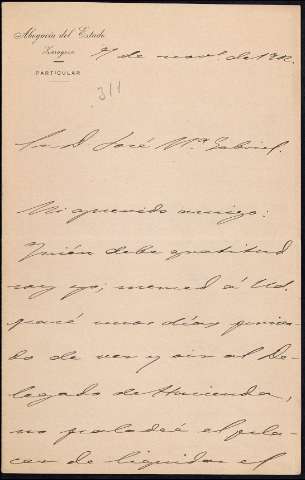 Abogacía del Estado
Zaragoza
PARTICULAR
7 de novbre. de 1912.
311
Sr. D. José Mª Gabriel.
Mi querido amigo:
Quién debe gratitud
soy yo; merced á Ud.
pasé unos días
de ver y oir al De-
legado de Hacienda,
no paladeé el pla-
cer de liquidar el